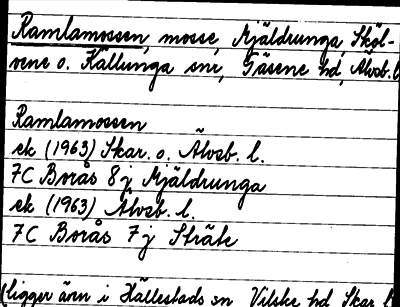 Ramlamossen, mosse, Mjäldrunga, Sköl-
vene o. Källunga snr, Gäsene hd, Älvsb. l
Ramlamossen
ek (1963) Skar. o. Älvsb. l.
7C Borås 8j Mjäldrunga
ek (1963) Älvsb. l.
7C Borås 7j Sträte
(ligger även i Hällestads sn Vilske hd Skar l